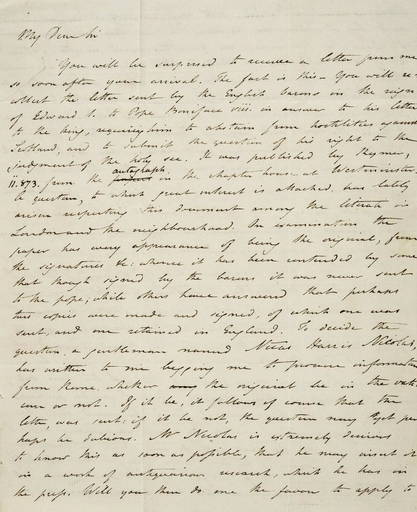 My Dear Sir
You will be surprised to receive a letter from me
so soon after your arrival. The fact is this – You will re-
collect the letter sent by the English barons in the reign
of Edward I. to Pope Boniface viii. in answer to his letter
to the king, requiring him to abstain from hostilities against
Scotland, and to submit the question of his right to the
judgment of the holy see. It was published by Rymer,
autograph
11.873. from the in the chapter house at Westminster.
A question, to which great interest is attached, has lately
arisen respecting this document among the literati in
London and the neighbourhood. On examination the
paper has every appearance of being the original, from
the signatures &c: whence it has been contended by some
that though signed by the barons it was never sent
to the pope, while others have answered that perhaps
two copies were made and signed, of which one was
sent, and one retained in England. To decide the
question, a gentleman named Nicolas Harris Nicolas,
has written to me begging me to procure information
from Rome, whether the original be in the vati-
can or not. If it be, it follows of course that the
letter was sent: if it be not, the question may yet per
haps be dubious. Mr Nicolas is extremely desirous
to know this as soon as possible, that he may insert it
in a work of antiquarian research, which he has in
the press. Will you then do me the favour to apply to